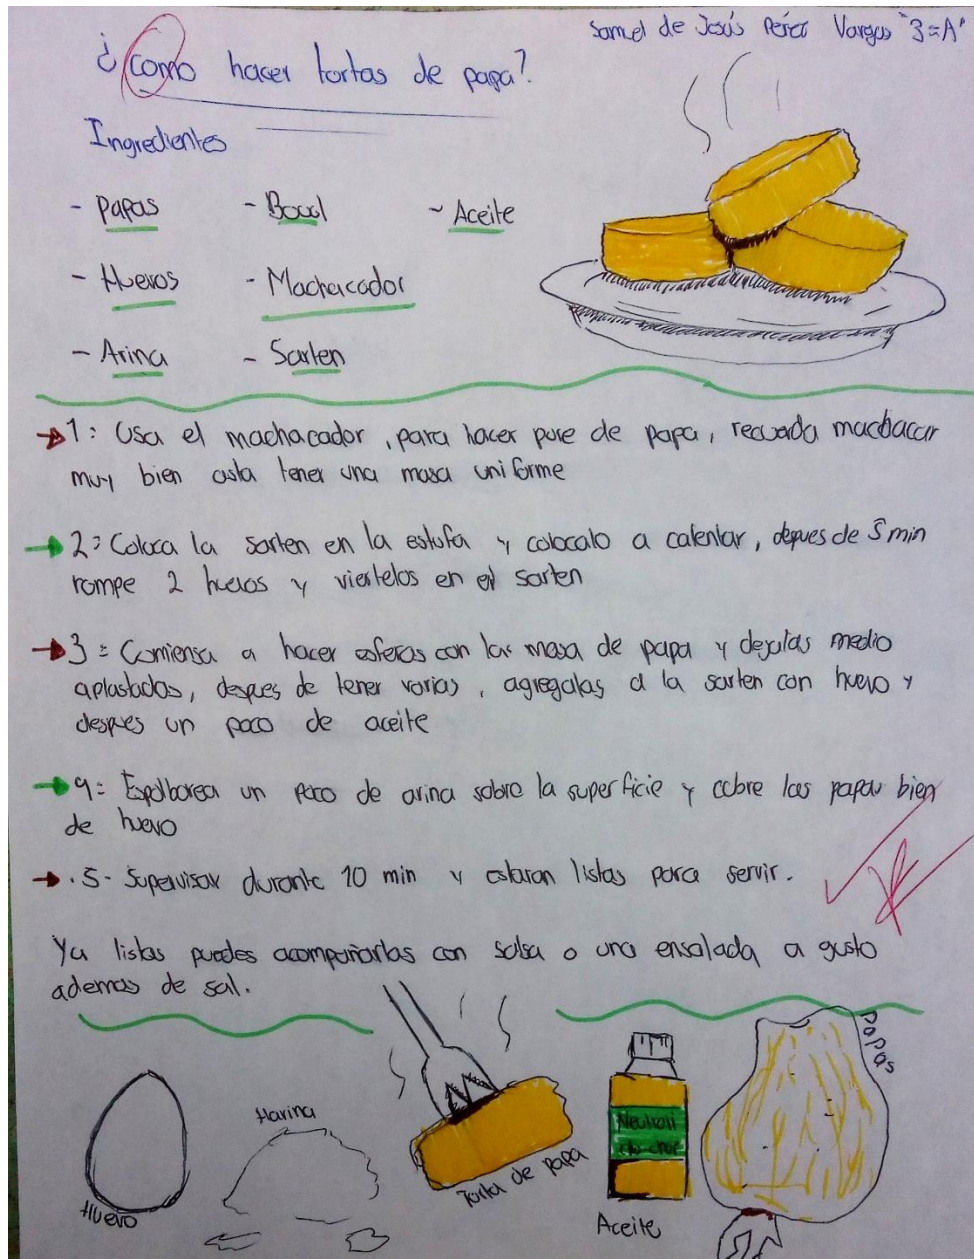 Samuel de Jesús Pérez Vargas "3=A"
¿Como hacer tortas de papa?
Ingredientes
- Papas - Bowl - Aceite
- Huevos - Machacador
- Arina - Sarten
1: Usa el machacador, para hacer pure de papa, recuerda machacar
muy bien asta tener una masa uniforme
2: Coloca la sarten en la estufa y colocalo a calentar, depues de 5 min
rompe 2 huevos y viertelos en el sarten
3: Comiensa a hacer esferas con la masa de papa y dejalas medio
aplastadas, despues de tener varias, agregalas a la sarten con huevo y
despues un poco de aceite
4: Espolborea un poco de arina sobre la superficie y cubre las papas bien
de huevo
5- Supervisar durante 10 min y estaran listas para servir.
Ya listas puedes acompañarlas con salsa o una ensalada a gusto
ademas de sal.
Huevo
Harina
Torta de papa
Aceite
Papas